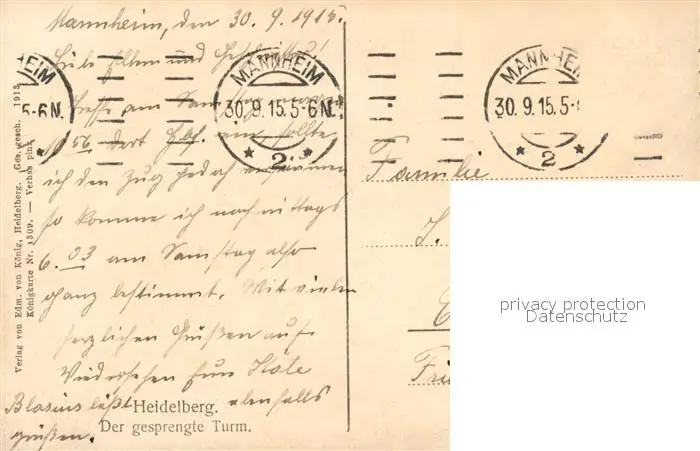 Mannheim, den 30. 9. 1915.
Liebe Eltern und Geschwister!
Treffe am Samstag
10 56 dort Hbf. ein sollte
ich den Zug jedoch versäumen
so komme ich nachmittags
6. 03 am Samstag also
ganz bestimmt. Mit vielen
herzlichen Grüßen auf
Wiedersehen Eure Käte
Blasius läßt ebenfalls
grüßen.
Heidelberg.
Der gesprengte Turm.
Verlag von Edm. von König, Heidelberg. Ges. gesch. 1913
Königkarte Nr. 1309. — Verhas pinx.
HEIM
5-6N.
MANNHEIM
30.9.15.5-6N.
* 2 *
MANNHEI
30.9.15.5-
* 2 *
Familie
J.
Frie
privacy protection
Datenschutz